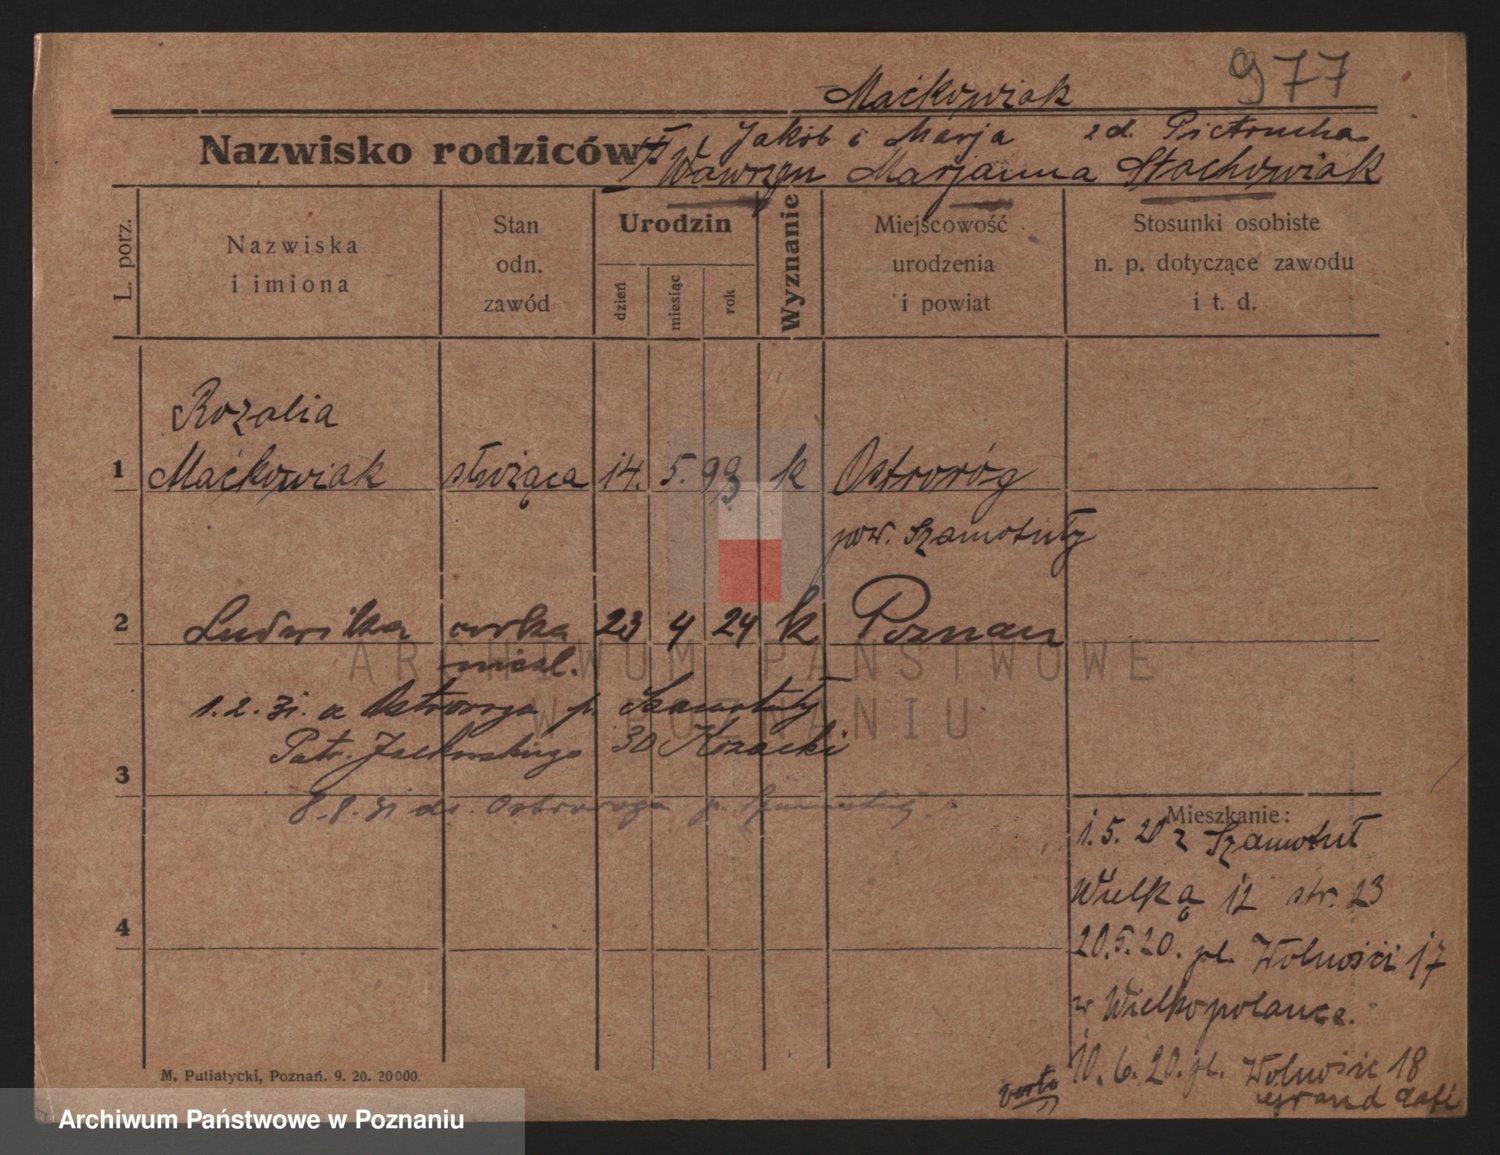 977
Maćkowiak
Jakób i Marja zd. Pietrucha
Nazwisko rodziców: Wawrzyn Marjanna Stachowiak
L. porz.
Nazwiska
i imiona
Stan
odn.
zawód
Urodzin
dzień
miesiąc
rok
Wyznanie
Miejscowość
urodzenia
i powiat
Stosunki osobiste
n. p. dotyczące zawodu
i t. d.
Rozalia
1 Maćkowiak służąca 14. 5. k Ostroróg
pow. Szamotuły
2 Ludwika córka 23 4 24 k Poznań
nieśl.
1.2.31. z Ostroroga p. Szamotuły
Patr. Jackowskiego 30 Kozacki
3
8.8.31 do Ostroroga p. Szamotuły
Mieszkanie:
1.5.20 z Szamotuł
Wielka 12 str. 23
4
20.5.20. pl. Wolności 17
w Wielkopolance.
10.6.20. pl. Wolności 18
Grand Café
verte
M. Putiatycki, Poznań. 9. 20. 20000.
ARCHIWUM PAŃSTWOWE
W POZNANIU
Archiwum Państwowe w Poznaniu